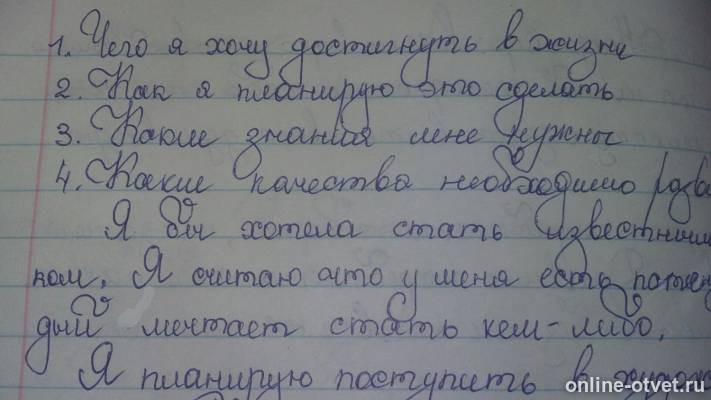 1. Чего я хочу достигнуть в жизни
2. Как я планирую это сделать
3. Какие знания мне нужны
4. Какие качества необходимо разв
Я бы хотела стать известным
ком. Я считаю что у меня есть потен
дый мечтает стать кем-либо.
Я планирую поступить в худож
online-otvet.ru